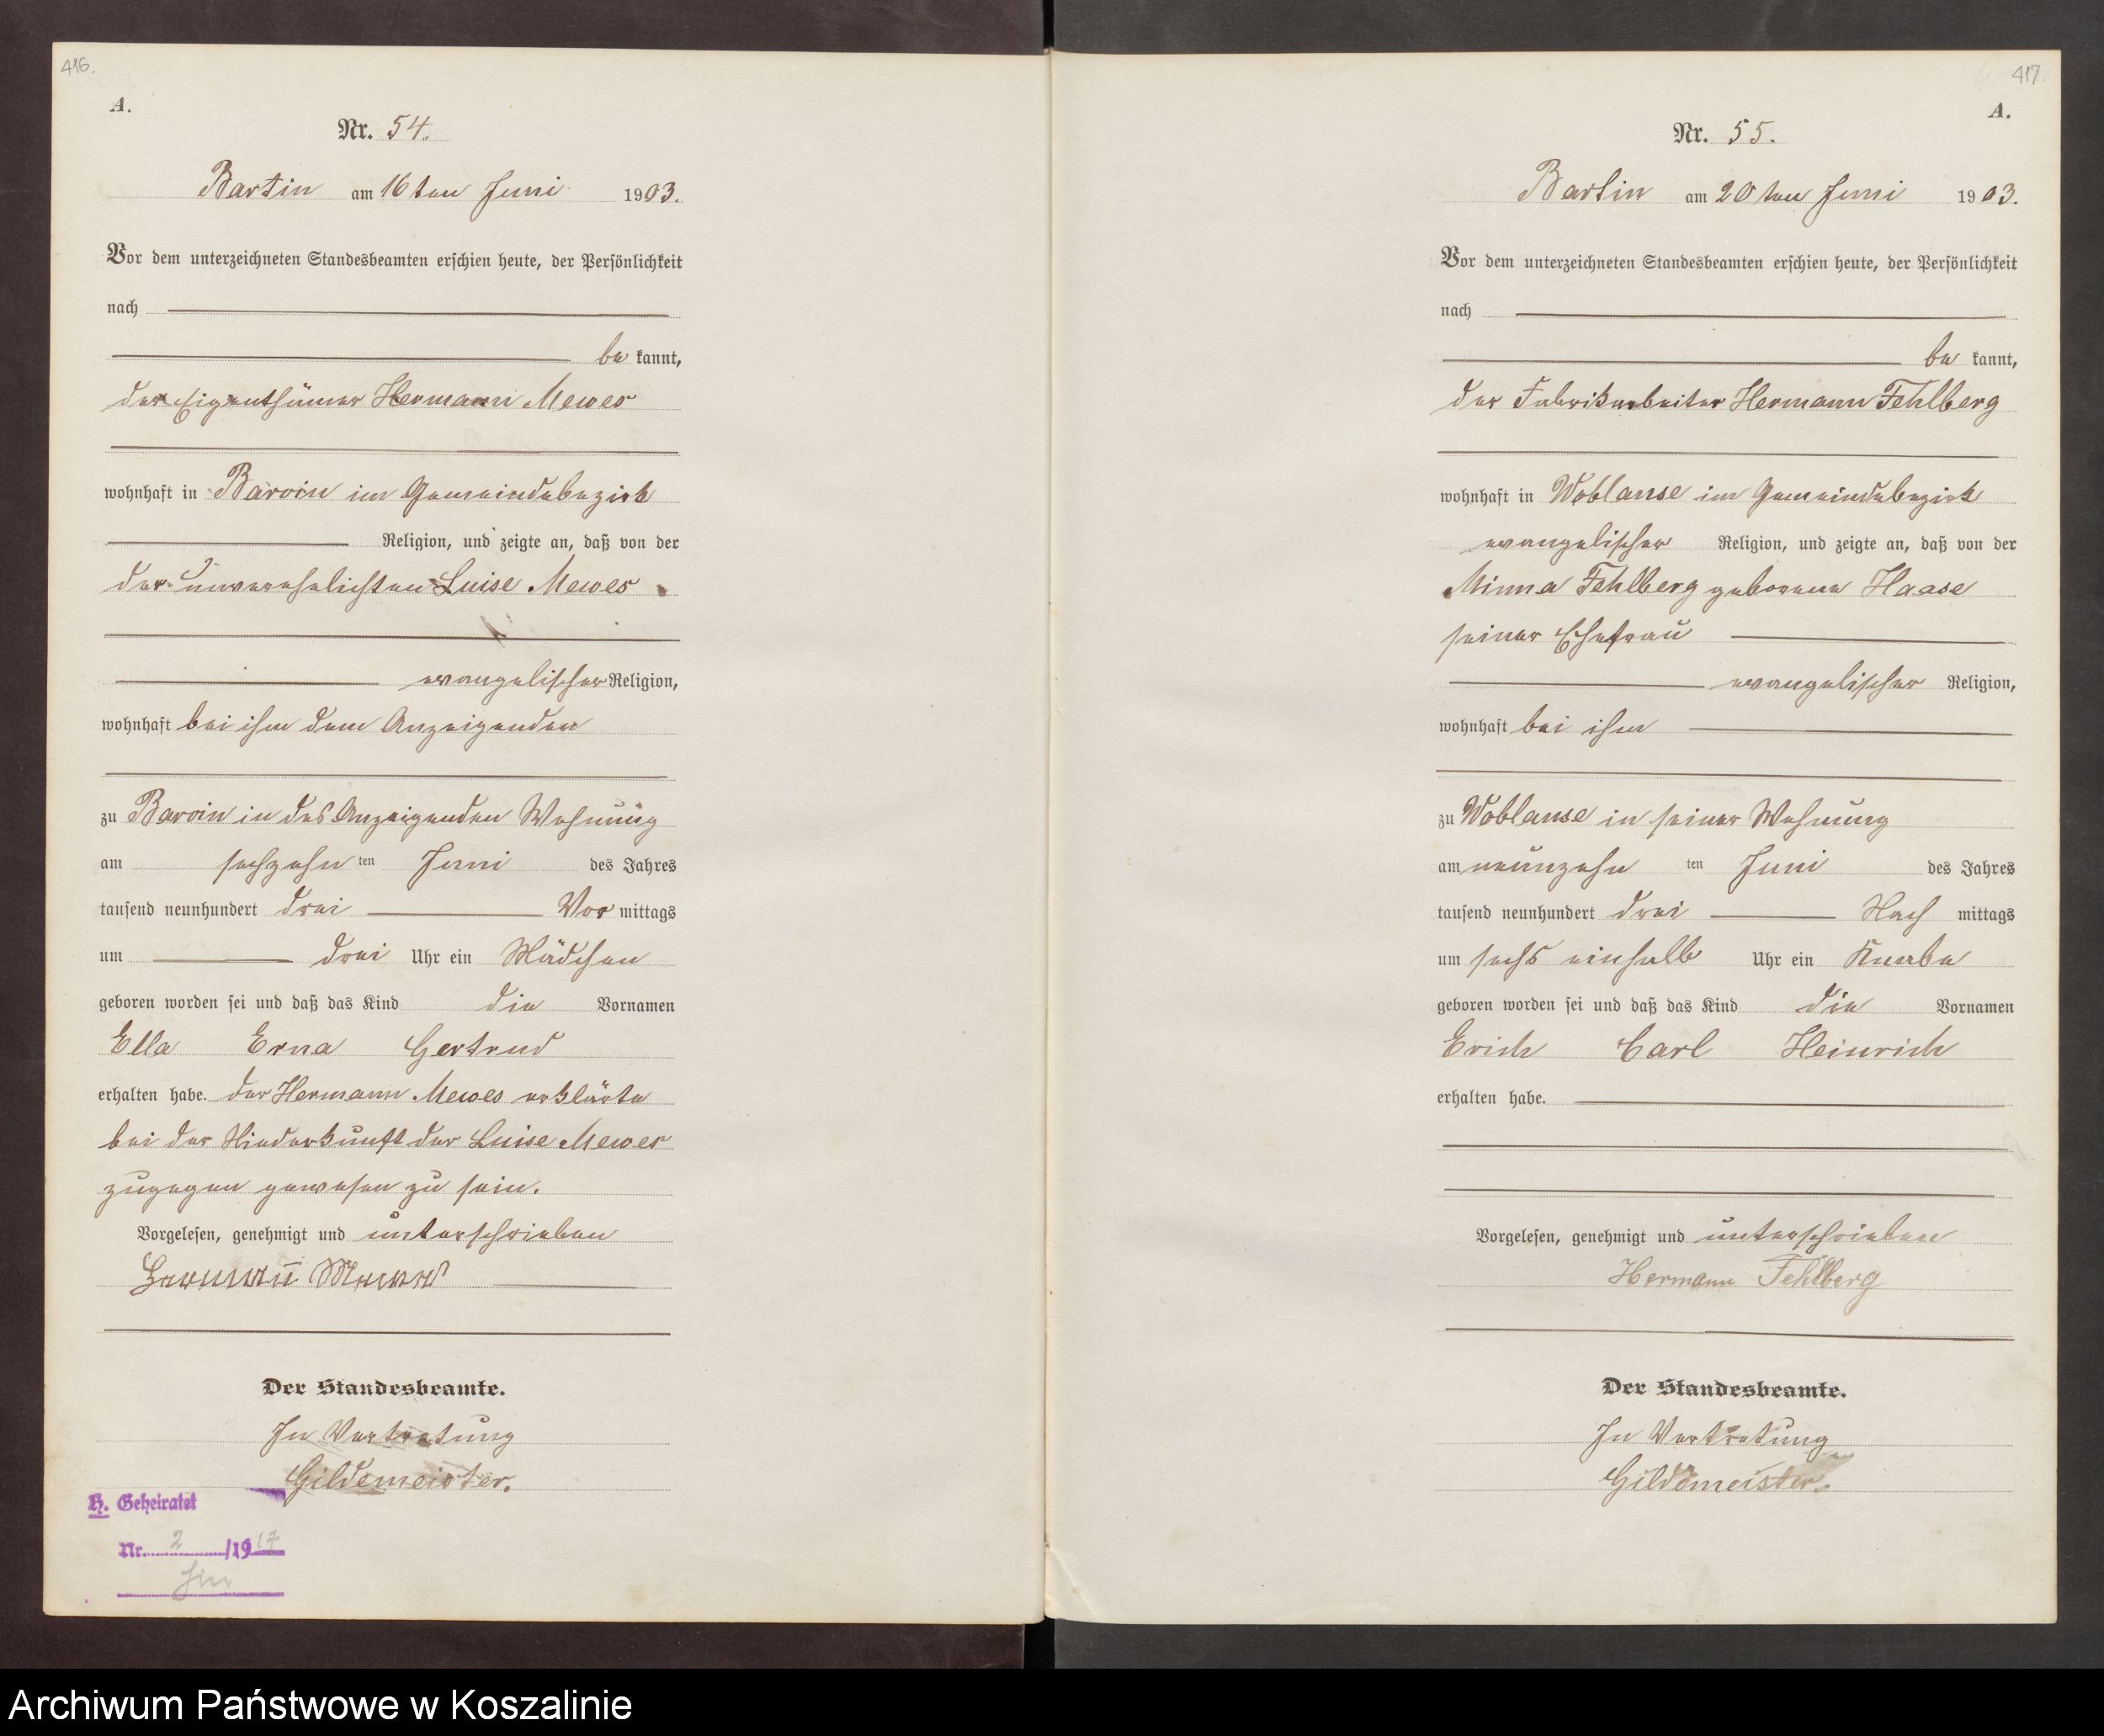 416.
A.
Nr. 54.
Bartin am 16ten Juni 1903.
Vor dem unterzeichneten Standesbeamten erschien heute, der Persönlichkeit
nach
be kannt,
der Eigenthümer Hermann Mewes
wohnhaft in Barvin im Gemeindebezirk
Religion, und zeigte an, daß von der
der unverehelichten Luise Mewes
evangelischer Religion,
wohnhaft bei ihm dem Anzeigenden
zu Barvin in des Anzeigenden Wohnung
am sechzehn ten Juni des Jahres
tausend neunhundert drei Vor mittags
um drei Uhr ein Mädchen
geboren worden sei und daß das Kind die Vornamen
Ella Erna Gertrud
erhalten habe. der Hermann Mewes erklärte
bei der Niederkunft der Luise Mewes
zugegen gewesen zu sein.
Vorgelesen, genehmigt und unterschrieben
Hermann Mewes
Der Standesbeamte.
In Vertretung
Gildemeister.
H. Geheiratet
Nr. 2 /1917
hier
417.
A.
Nr. 55.
Bartin am 20ten Juni 1903.
Vor dem unterzeichneten Standesbeamten erschien heute, der Persönlichkeit
nach
be kannt,
der Fabrikarbeiter Hermann Fehlberg
wohnhaft in Woblanse im Gemeindebezirk
evangelischer Religion, und zeigte an, daß von der
Minna Fehlberg geborene Haase
seiner Ehefrau
evangelischer Religion,
wohnhaft bei ihm
zu Woblanse in seiner Wohnung
am neunzehn ten Juni des Jahres
tausend neunhundert drei Nach mittags
um sechs einhalb Uhr ein Knabe
geboren worden sei und daß das Kind die Vornamen
Erich Carl Heinrich
erhalten habe.
Vorgelesen, genehmigt und unterschrieben
Hermann Fehlberg
Der Standesbeamte.
In Vertretung
Gildemeister.
Archiwum Państwowe w Koszalinie